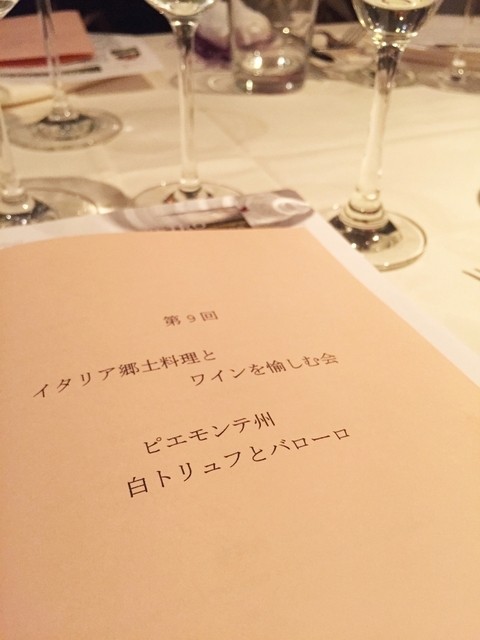 第9回
イタリア郷土料理と
ワインを愉しむ会
ピエモンテ州
白トリュフとバローロ